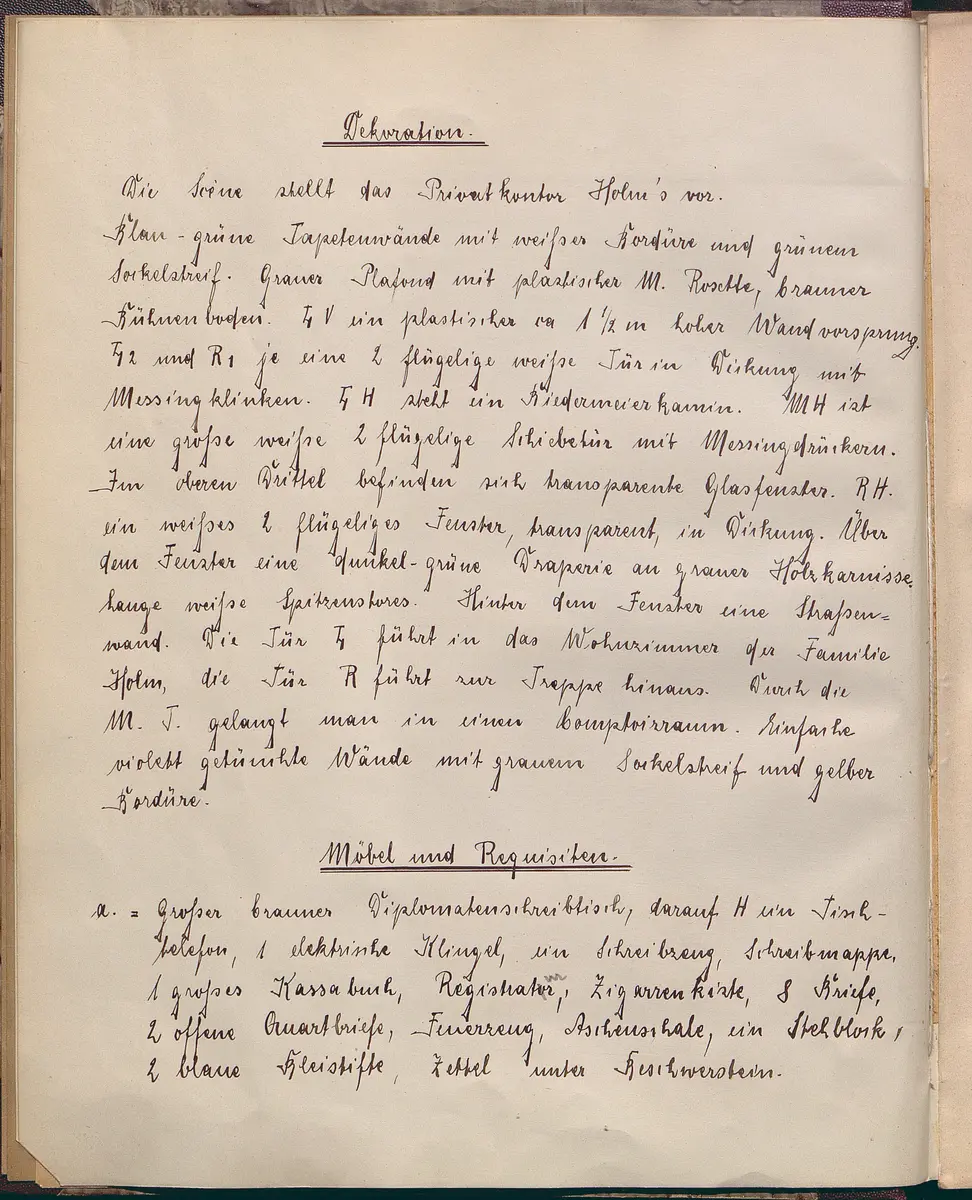 Dekoration.
Die Scène stellt das Privatkontor Holm's vor.
Blau-grüne Tapetenwände mit weißer Bordüre und grünem
Sockelstreif. Grauer Plafond mit plastischer M. Rosette, brauner
Bühnenboden. L V ein plastischer ca 1 1/2 m hoher Wandvorsprung.
L2 und R1 je eine 2 flügelige weiße Tür in Dickung mit
Messingklinken. L H steht ein Biedermeierkamin. MH ist
eine große weiße 2 flügelige Schiebetür mit Messingdrückern.
Im oberen Drittel befinden sich transparente Glasfenster. RH.
ein weißes 2 flügeliges Fenster, transparent, in Dickung. Über
dem Fenster eine dunkel-grüne Draperie an grauer Holzkarnisse,
lange weiße Spitzenstores. Hinter dem Fenster eine Straßen=
wand. Die Tür L führt in das Wohnzimmer der Familie
Holm, die Tür R führt zur Treppe hinaus. Durch die
M. T. gelangt man in einen Comptoirraum. Einfache
violett getünchte Wände mit grauem Sockelstreif und gelber
Bordüre.
Möbel und Requisiten.
a. = Großer brauner Diplomatenschreibtisch, darauf H ein Tisch-
telefon, 1 elektrische Klingel, ein Schreibzeug, Schreibmappe,
1 großes Kassabuch, Registrator, Zigarrenkiste, 8 Briefe,
2 offene Quartbriefe, Feuerzeug, Aschenschale, ein Stehblock,
2 blaue Bleistifte, Zettel unter Beschwerstein.